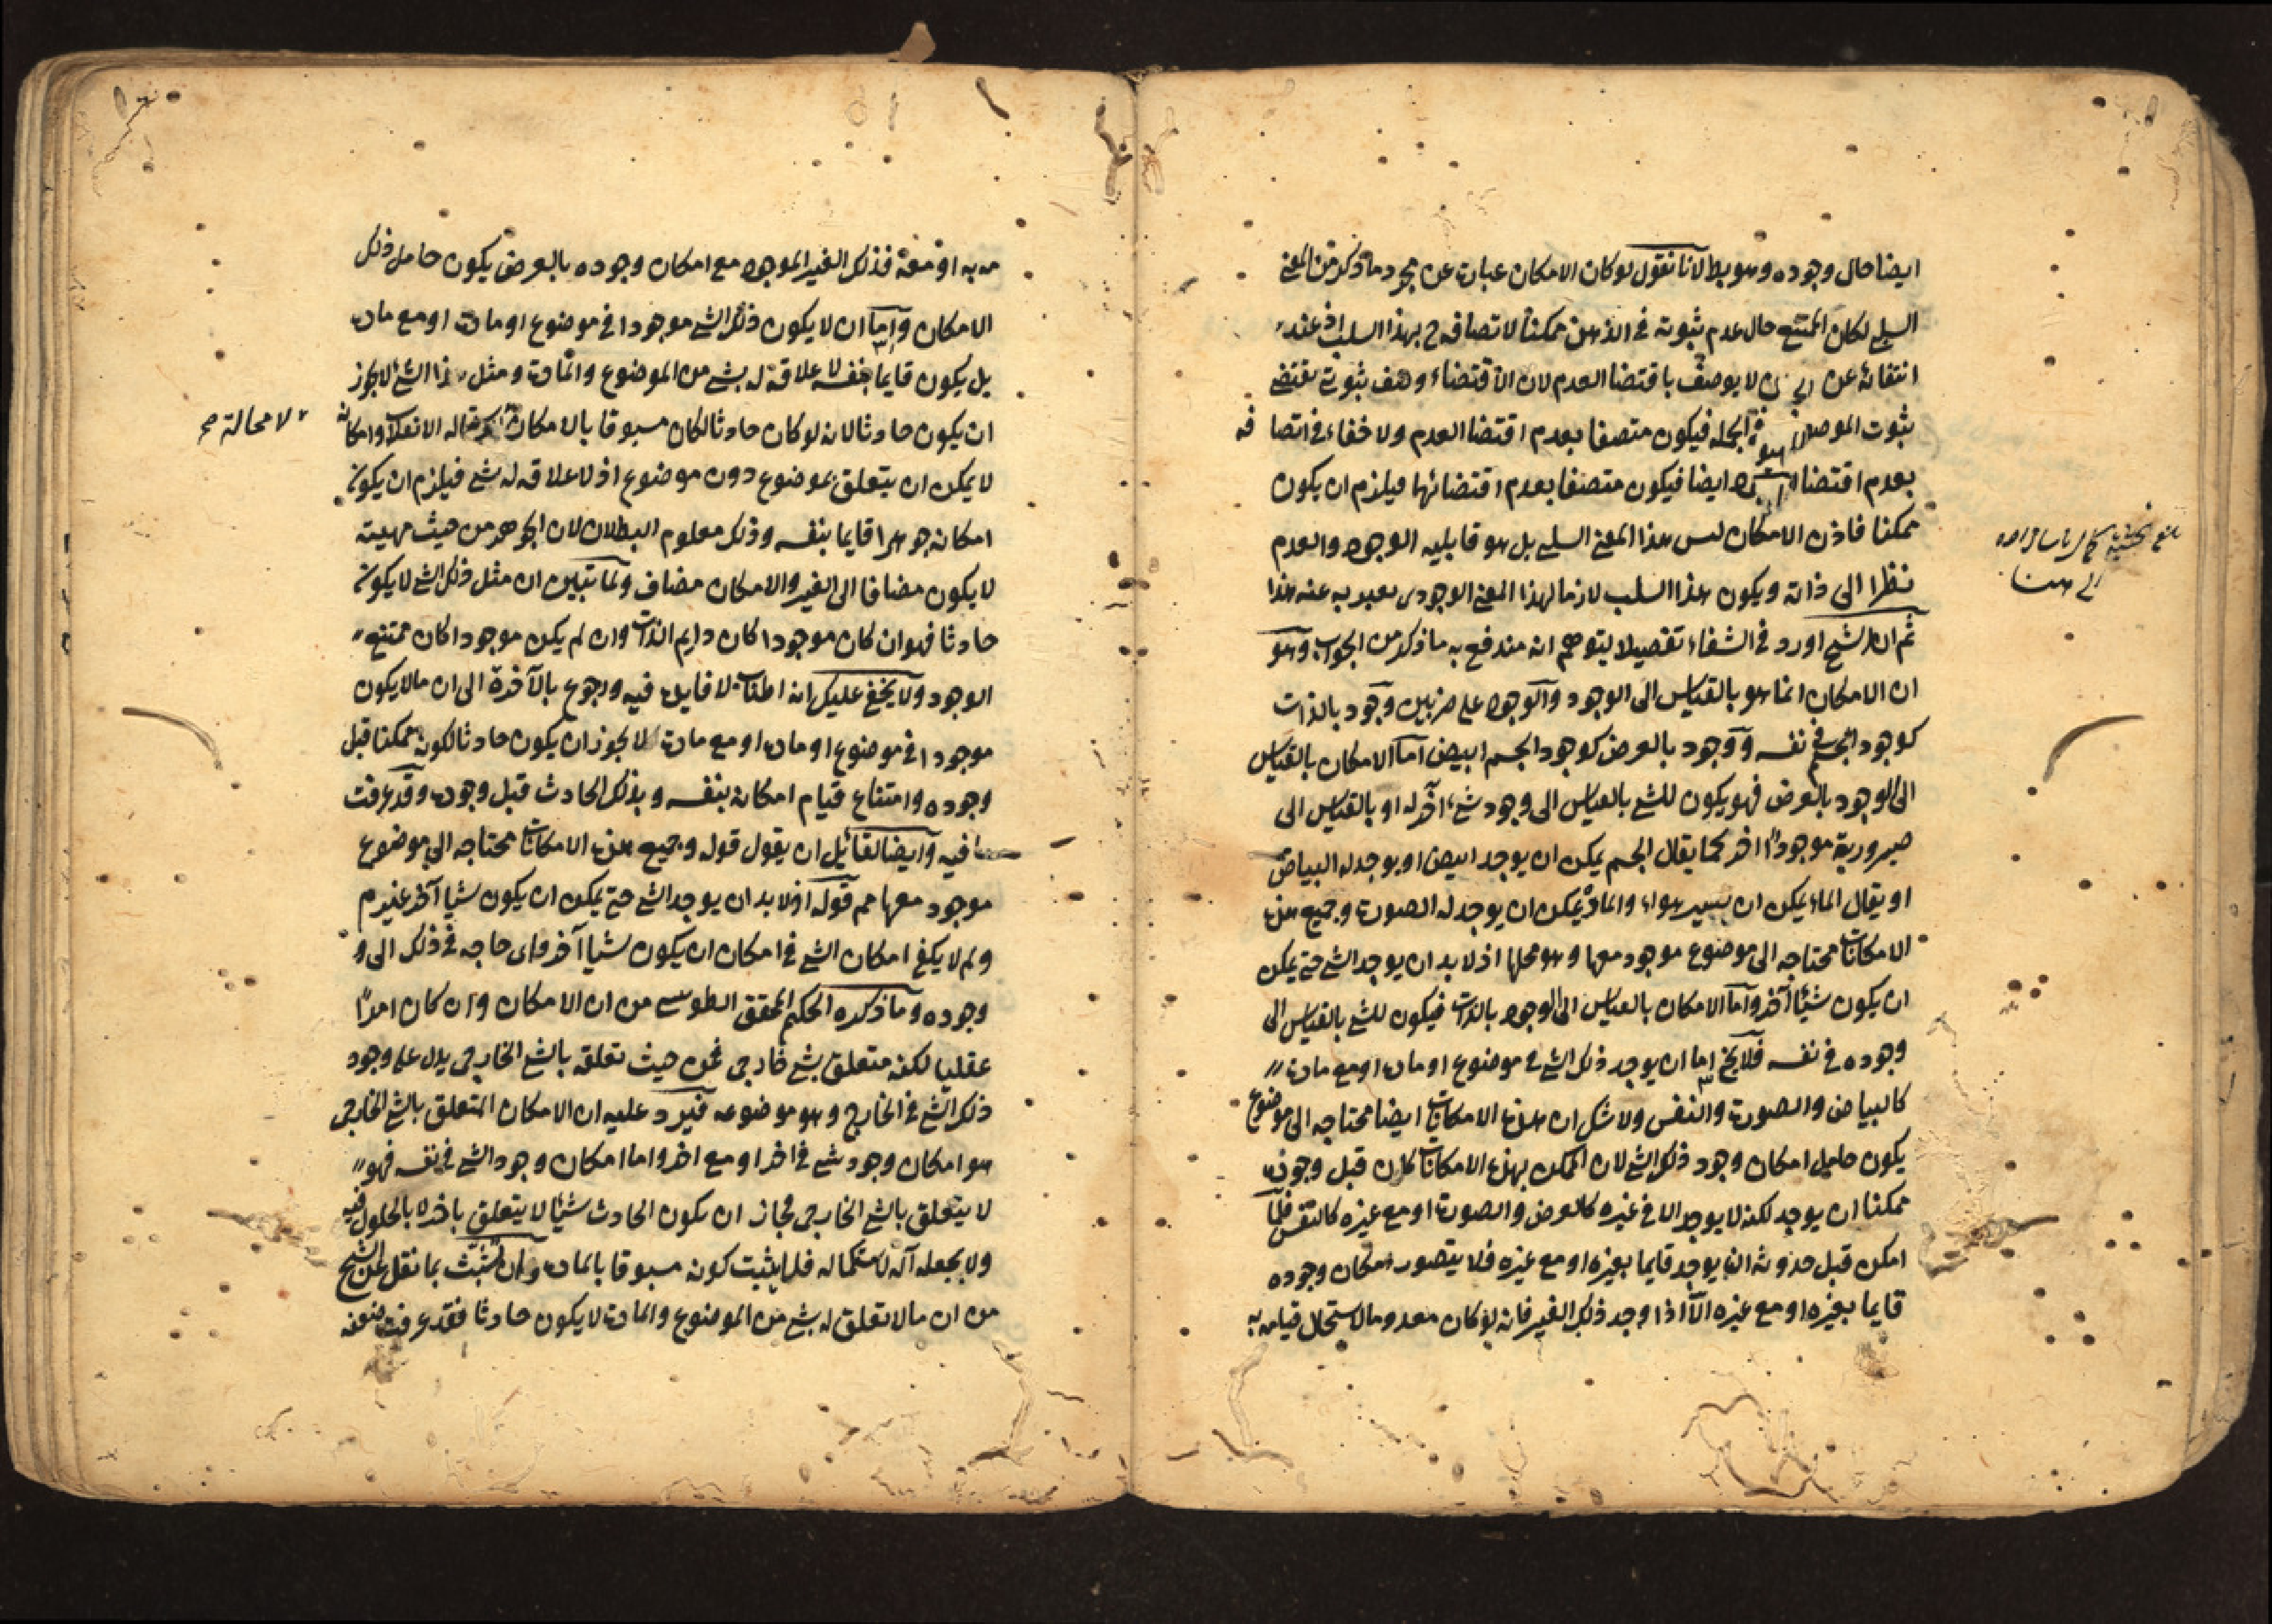 ايضا حال وجوده وهو بط لانا نقول لو كان الامكان عبارت عن مجرد ما ذكر من المعنى
السلبي لكان الممتنع حال عدم ثبوته في الذهن ممكنا لاتصافه ح بهذا السلب اذ عند
انتفائه عن لا يوصف باقتضا العدم لان الاقتضاء وصف ثبوتي يقتضي
ثبوت الموصوف في الجمله فيكون متصفا بعدم اقتضا العدم ولا خفاء في اتصافه
بعدم اقتضا ايضا فيكون متصفا بعدم اقتضائهما فيلزم ان يكون
ممكنا فاذن الامكان ليس هذا المعنى السلبي بل هو قابليه الوجود والعدم
نظرا الى ذاته ويكون هذا السلب لازما لهذا المعنى الوجودى يعبر به عنه هذا
ثم ان الشيخ اورد في الشفاء تفصيلا يتوهم انه مندفع به ما ذكر من الجواب وهو
ان الامكان انما هو بالقياس الى الوجود والوجود على ضربين وجود بالذات
كوجود الجسم في نفسه ووجود بالعرض كوجود الجسم ابيض اما الامكان بالقياس
الى الوجود بالعرض فهو يكون للشئ بالقياس الى وجود شئ آخر له او بالقياس الى
صيرورته موجودا اخر كما يقال الجسم يمكن ان يوجد ابيض او يوجد له البياض
او يقال الماء يمكن ان يصير هواء والمادة يمكن ان يوجد له الصورت وجميع هذه
الامكانات محتاجه الى موضوع موجود معها وهو محلها اذ لا بد ان يوجد الشئ حتى يمكن
ان يكون شيئا آخر واما الامكان بالقياس الى الوجود بالذات فيكون للشئ بالقياس الى
وجوده في نفسه فلا يخ اما ان يوجد ذلك الشئ في موضوع او مادت او مع مادت
كالبياض والصورت والنفس ولا شك ان هذه الامكانات ايضا محتاجه الى موضوع
يكون حامل امكان وجود ذلك الشئ لان الممكن بهذه الامكانات كان قبل وجوده
ممكنا ان يوجد لكنه لا يوجد الا في غيره كالعرض والصورت او مع غيره كالنفس فلما
امكن قبل حدوثه ان يوجد قايما بغيره او مع غيره فلا يتصور امكان وجوده
قايما بغيره او مع غيره الا اذا وجد ذلك الغير فانه لو كان معدوما لاستحال قيامه به
مه به او معه فذلك الغير الموجود مع امكان وجوده بالعرض يكون حامل ذلك
الامكان واما ان لا يكون ذلك الشئ موجودا في موضوع او مادت او مع مادت
بل يكون قايما بنفسه لا علاقة له بشئ من الموضوع والمادت ومثل هذا الشئ لا يجوز
ان يكون حادثا لانه لو كان حادثا لكان مسبوقا بالامكان وامكانه
لا محالة صح
لا يمكن ان يتعلق بموضوع دون موضوع اذ لا علاقه له بشئ فيلزم ان يكون
امكانه جوهرا قايما بنفسه وذلك معلوم البطلان لان الجوهر من حيث مهيته
لا يكون مضافا الى الغير والامكان مضاف ولما تبين ان مثل ذلك الشئ لا يكون
حادثا فهو ان كان موجودا كان دايم الذات وان لم يكن موجودا كان ممتنع
الوجود ولا يخفى عليك انه اطناب لا فايدت فيه ورجوع بالآخرة الى ان ما لا يكون
موجودا في موضوع او مادت او مع مادت لا يجوز ان يكون حادثا لكونه ممكنا قبل
وجوده وامتناع قيام امكانه بنفسه وبذلك الحادث قبل وجوده وقد عرفت
ما فيه وايضا لقائل ان يقول قوله وجميع هذه الامكانات محتاجه الى موضوع
موجود معها مم قوله اذ لا بد ان يوجد الشئ حتى يمكن ان يكون شيا آخر غير م
ولم لا يكفى امكان الشئ في امكان ان يكون شيا آخر واى حاجه في ذلك الى و
وجوده وما ذكره الحكيم المحقق الطوسي من ان الامكان وان كان امرا
عقليا لكنه متعلق بشئ خارجى فمن حيث تعلقه بالشئ الخارجى يدل على وجود
ذلك الشئ في الخارج وهو موضوعه فيرد عليه ان الامكان المتعلق بالشئ الخارجى
هو امكان وجود شئ في اخر او مع اخر واما امكان وجود الشئ في نفسه فهو
لا يتعلق بالشئ الخارجى فجاز ان يكون الحادث شيئا لا يتعلق باخر لا بالحلول فيه
ولا بجعله آلة لاستكماله فلم يثبت كونه مسبوقا بالمادت وان تشبث بما نقل عن الشيخ
من ان ما لا تعلق له بشئ من الموضوع والمادت لا يكون حادثا فقد عرفت ضعفه